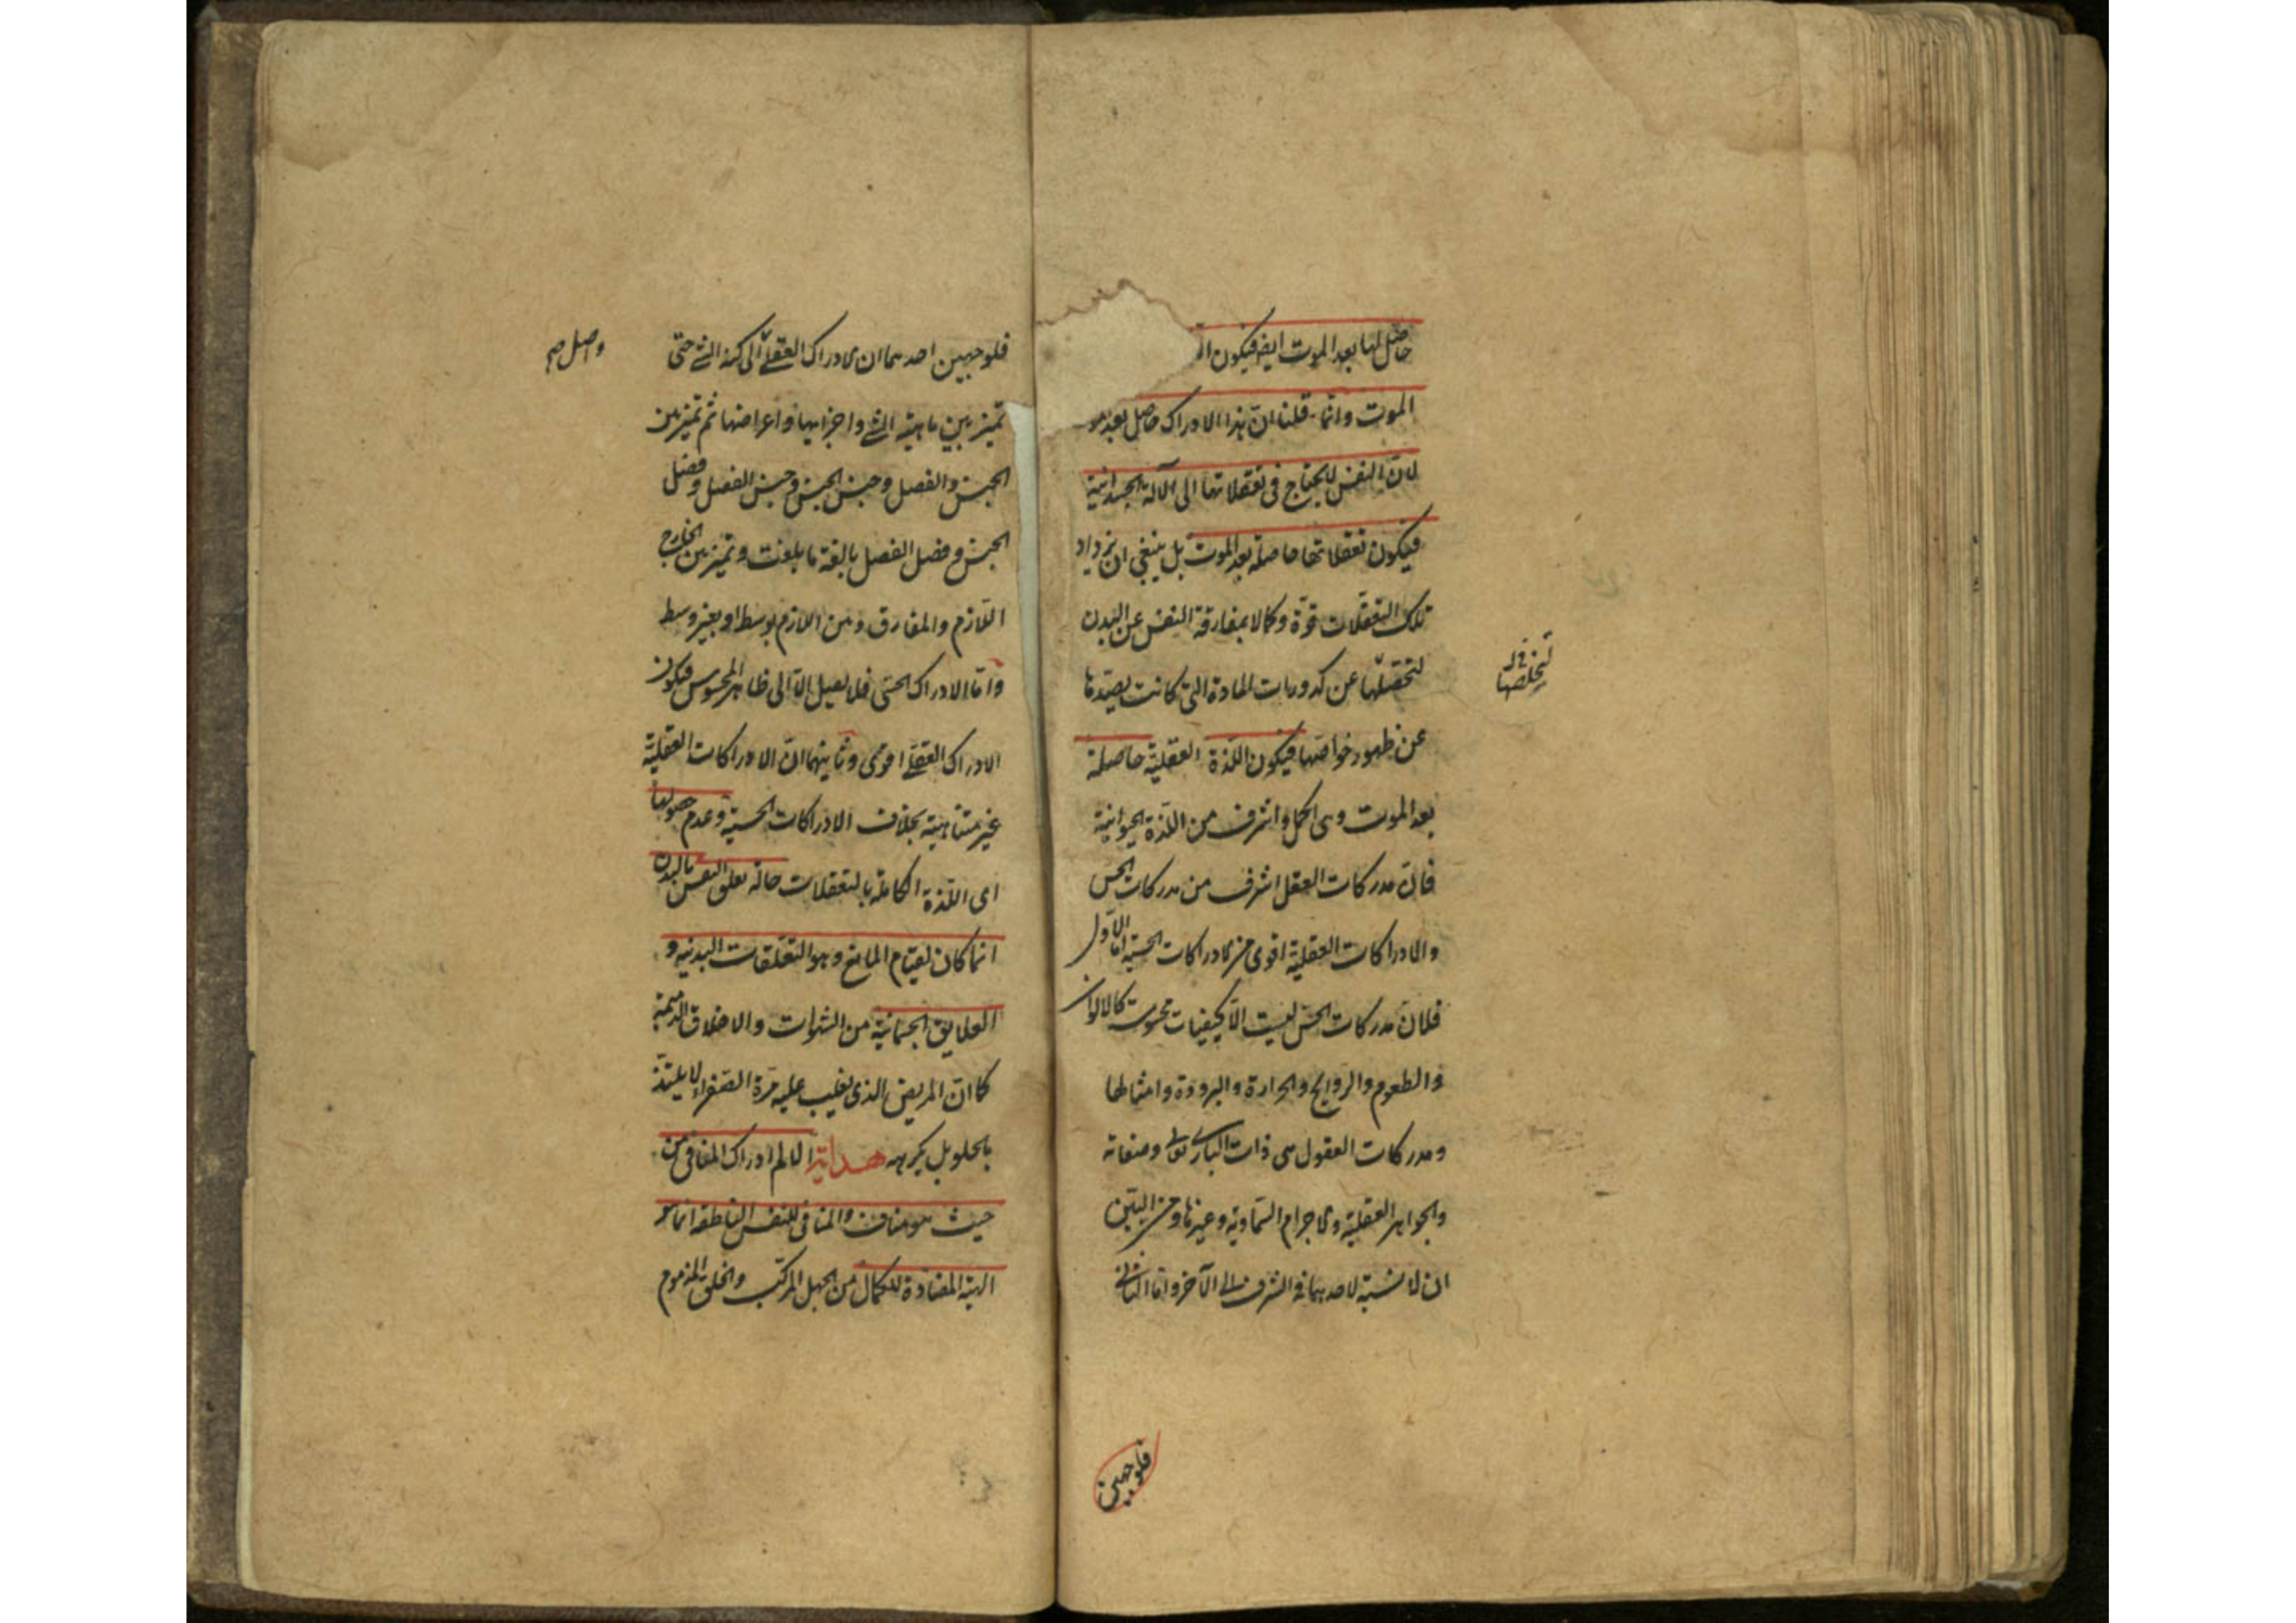 حاصل لها بعد الموت ايضا فيكون
الموت وانما قلنا ان هذا الادراك حاصل بعد
لان النفس لا يحتاج فى تعقلاتها الى الآلة الجسدانية
فيكون تعقلاتها حاصلة بعد الموت بل ينبغى ان يزداد
تلك التعقلات قوة وكمالا بمفارقة النفس عن البدن
عن كدورات المادة التى كانت يصدها
لتخلصها
عن ظهور خواصها فيكون اللذة العقلية حاصلة
بعد الموت وهى اكمل واشرف من اللذة الحيوانية
فان مدركات العقل اشرف من مدركات الحس
والادراكات العقلية اقوى من الادراكات الحسية اما الاول
فلان مدركات الحس ليست الا كيفيات محسوسة كالالوان
والطعوم والروايح والحرارة والبرودة وامثالها
ومدركات العقول هى ذات البارى تعالى وصفاته
والجواهر العقلية والاجرام السماوية وغيرها ومن البين
ان لا نسبة لاحدهما فى الشرف الى الآخر واما الثانى
فلوجهين
فلوجهين احدهما ان الادراك العقلى الى كنه الشئ حتى
واصل صح
تميز بين ماهية الشئ واجزايها واعراضها ثم تميز بين
الجنس والفصل وجنس الجنس وجنس الفصل وفصل
الجنس وفصل الفصل بالغة ما بلغت وتميز بين الخارج
اللازم والمفارق وبين اللازم بوسط او بغير وسط
واما الادراك الحسى فلا يصل الا الى ظاهر المحسوس فيكون
الادراك العقلى اقوى وثانيهما ان الادراكات العقلية
غير متناهية بخلاف الادراكات الحسية وعدم حصولها
اى اللذة الكاملة بالتعقلات حالة تعلق النفس بالبدن
انما كان لقيام المانع وهو التعلقات البدنية و
العلايق الجسمانية من الشهوات والاخلاق الذميمة
كما ان المريض الذى يغلب عليه مرة الصفراء لا يلتذ
بالحلو بل يكرهه هداية الالم ادراك المنافى من
حيث هو مناف والمنافى للنفس الناطقة انما هو
الهيئة المضادة للكمال من الجهل المركب والخلق المذموم